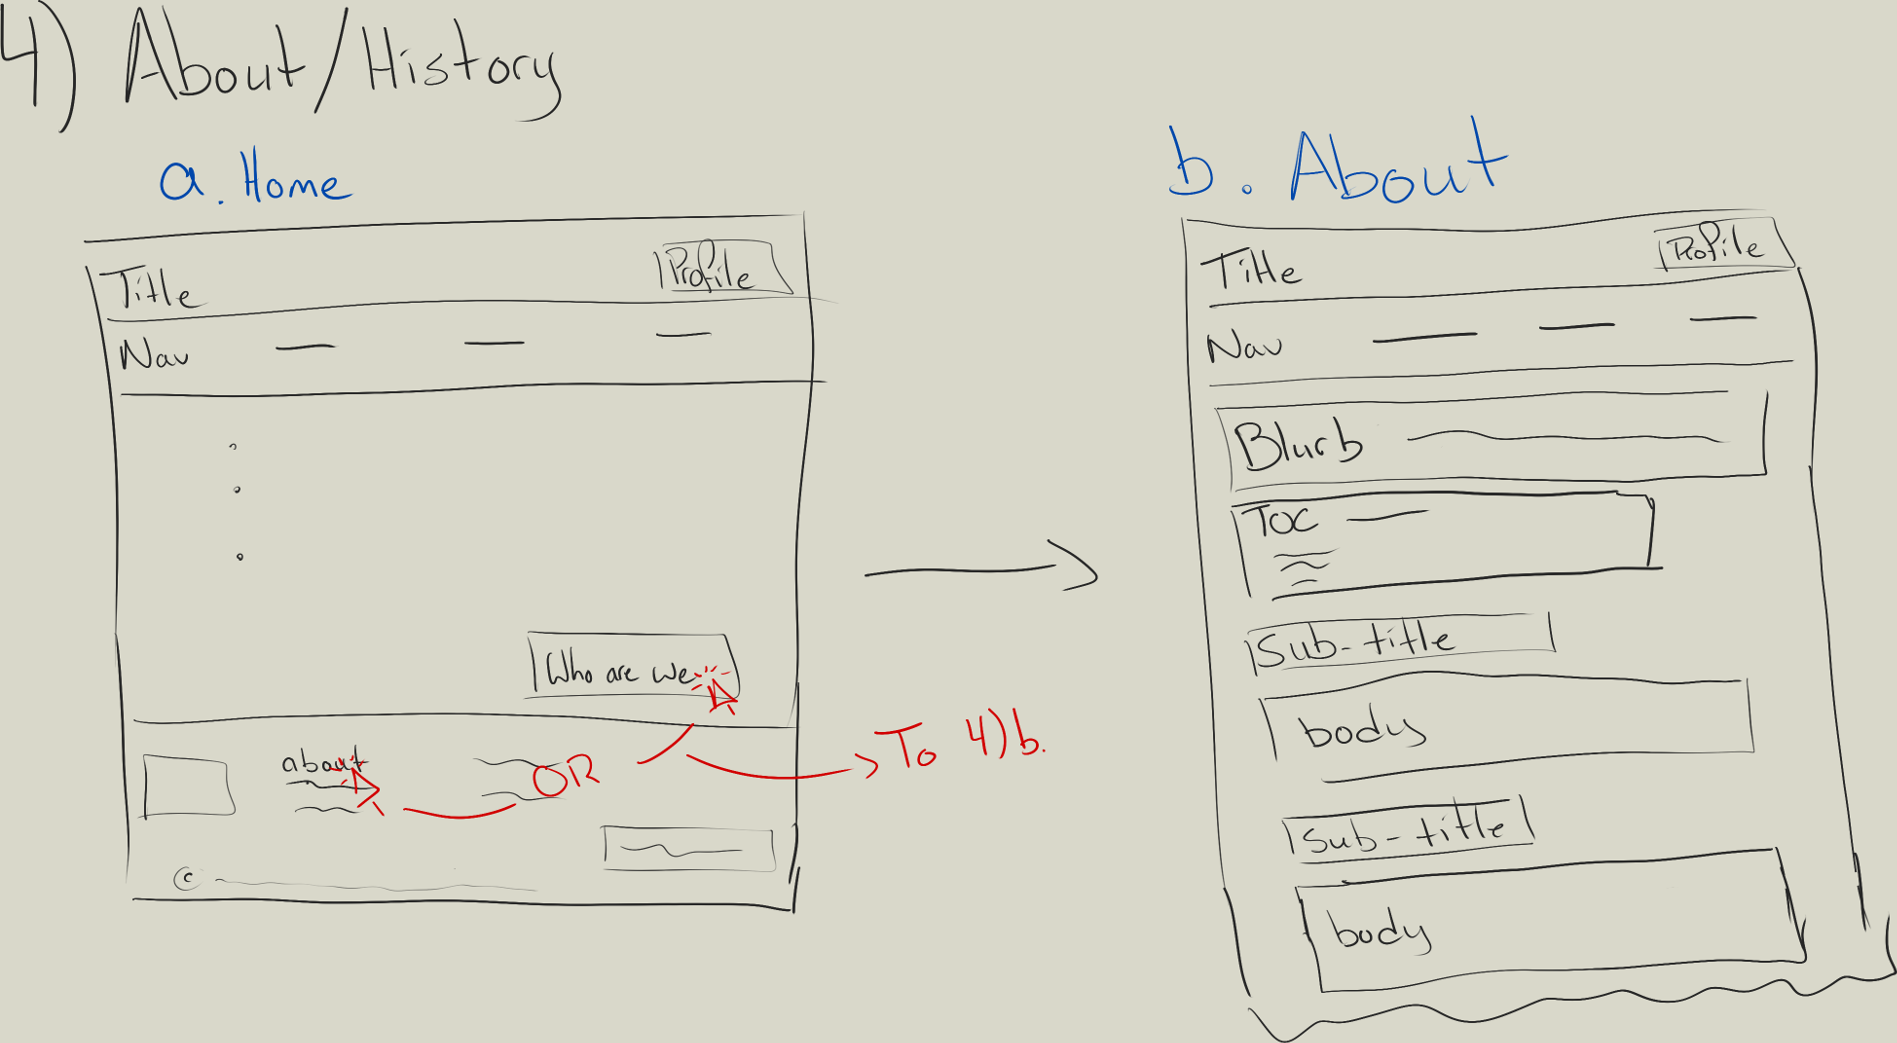 4) About/History
a. Home
Title
Profile
Nav
Who are we
about
OR
To 4)b.
©
b. About
Title
Profile
Nav
Blurb
TOC
Sub-title
body
Sub-title
body